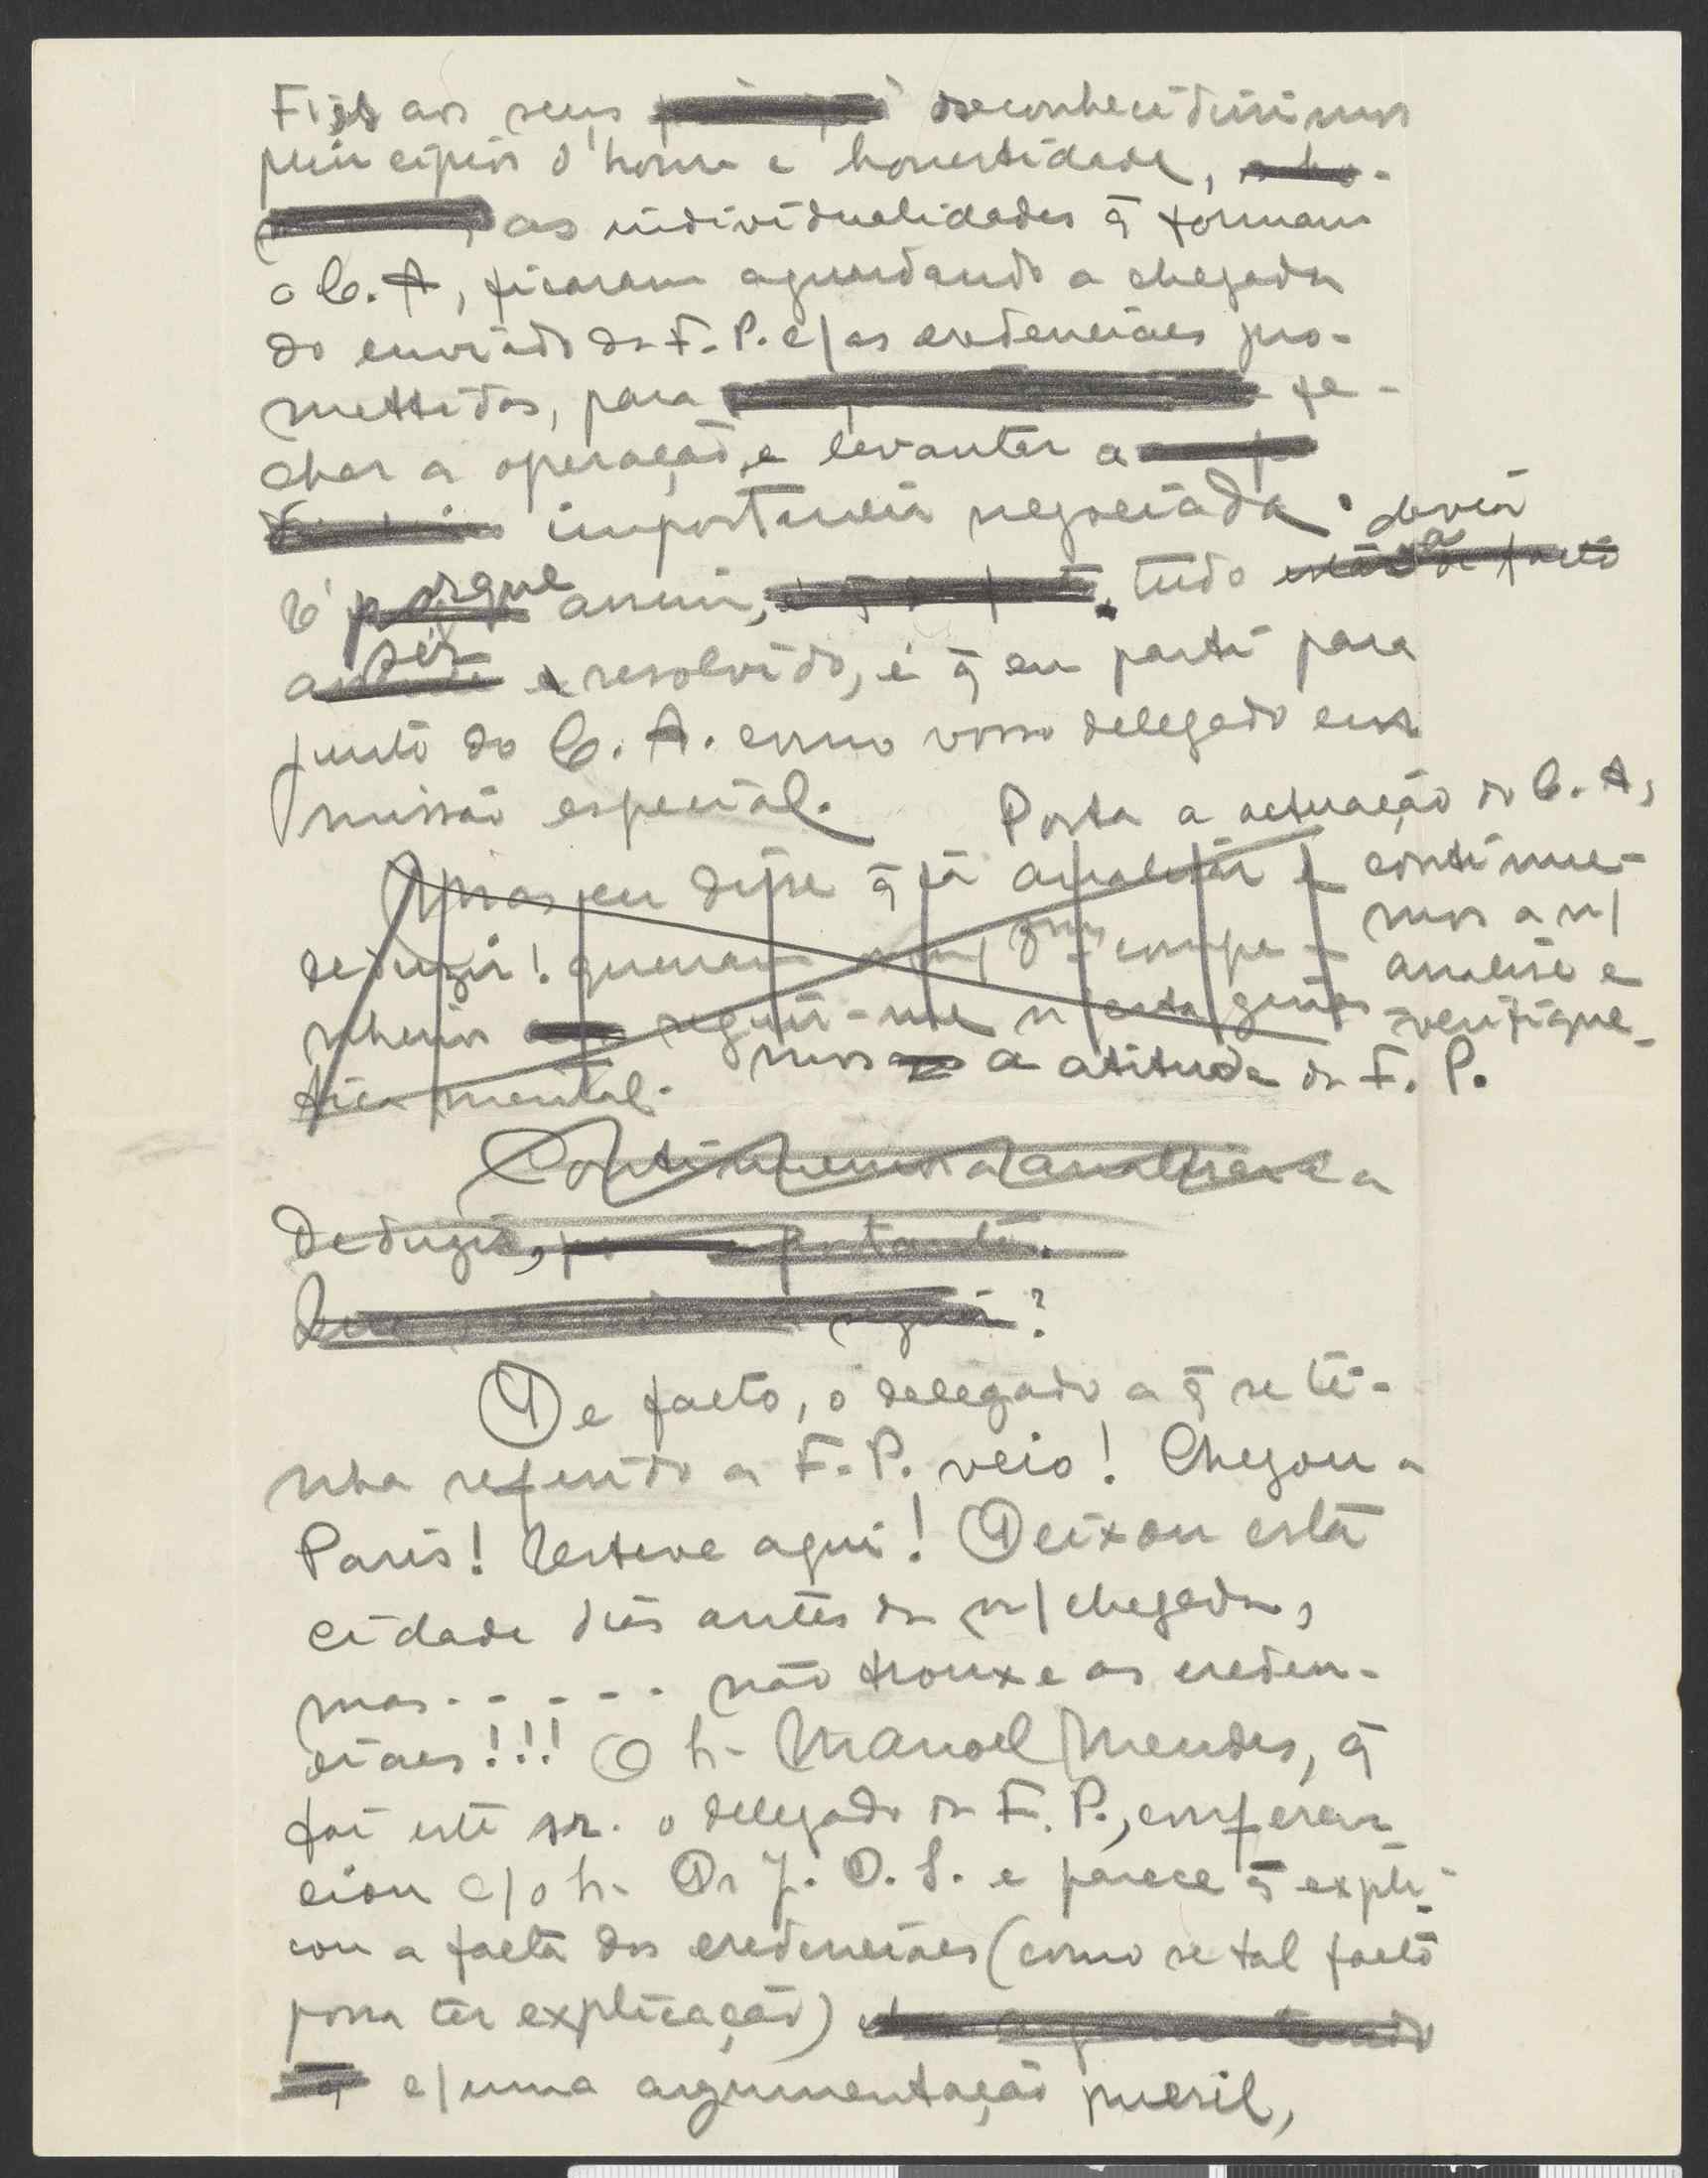 Fieis aos seus desconhecidissimos
principios d'honra e honestidade,
as individualidades q̃ formam
o C. A, ficaram aguardando a chegada
do enviado da F. P. c/ as credenciaes pro-
mettidas, para fe-
char a operação, e levantar a
importancia negociada.
E' porque assim, tudo devia
ser resolvido, é q̃ eu parti para
junto do C. A. como vosso delegado em
missão especial.
Posta a actuação do C. A,
continue-
mos a n/
analise e
verifique-
mos a atitude da F. P.
Mas eu disse q̃ ia analisar e
deduzir! queram compa-
nheiros seguir-me n'esta ginas-
tica mental.
Continuemos a analisar e a
Deduzir, portanto.
?
De facto, o delegado a q̃ se ti-
nha referido a F. P. veio! Chegou a
Paris! Esteve aqui! Deixou esta
cidade dias antes da m/ chegada,
mas . - - - - . não trouxe as creden-
ciaes!!! O h- Manoel Mendes, q̃
foi este sr. o delegado da F. P., conferen-
ciou c/ o h- Dr J. D. S. e parece q̃ expli-
cou a falta das credenciaes (como se tal facto
possa ter explicação)
c/ uma argumentação pueril,